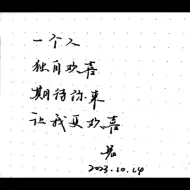 一个人
独自欢喜
期待你来
让我更欢喜
2023.10.24